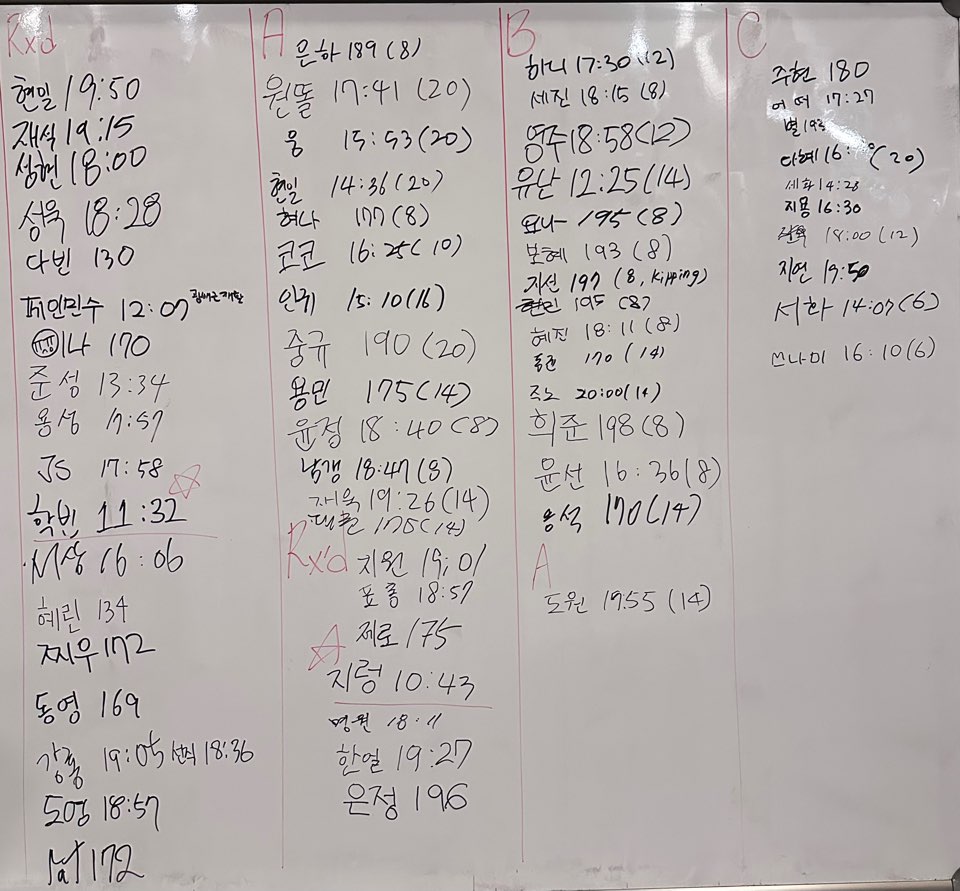 Rxd
현밀 19:50
재식 19:15
성현 18:00
성욱 18:28
다빈 130
페인민수 12:07
미나 170
준성 13:34
용성 17:57
JS 17:58
학빈 11:32
16:06
혜린 134
찌우 172
동영 169
강홍 19:05 18:36
도영 18:57
172
A
은하 189 (8)
원똘 17:41 (20)
웅 15:53 (20)
현일 14:36 (20)
혀나 177 (8)
코코 16:25 (10)
인귀 15:10 (16)
중규 190 (20)
용민 175 (14)
윤정 18:40 (8)
남갱 18:47 (8)
재욱 19:26 (14)
175 (14)
Rx'd
지원 19:01
표종 18:57
제로 175
지렁 10:43
명원 18:11
한열 19:27
은정 196
B
하니 17:30 (12)
세진 18:15 (8)
영주 18:58 (12)
유난 12:25 (14)
요나 195 (8)
보혜 193 (8)
지선 197 (8, kipping)
195 (8)
혜진 18:11 (8)
170 (14)
20:00 (14)
희준 198 (8)
윤선 16:36 (8)
용석 170 (14)
A
도원 19:55 (14)
C
주현 180
17:27
별 193
다혜 16: (20)
세화 14:28
지용 16:30
18:00 (12)
지연 19:50
서화 14:07 (6)
쓰나미 16:10 (6)